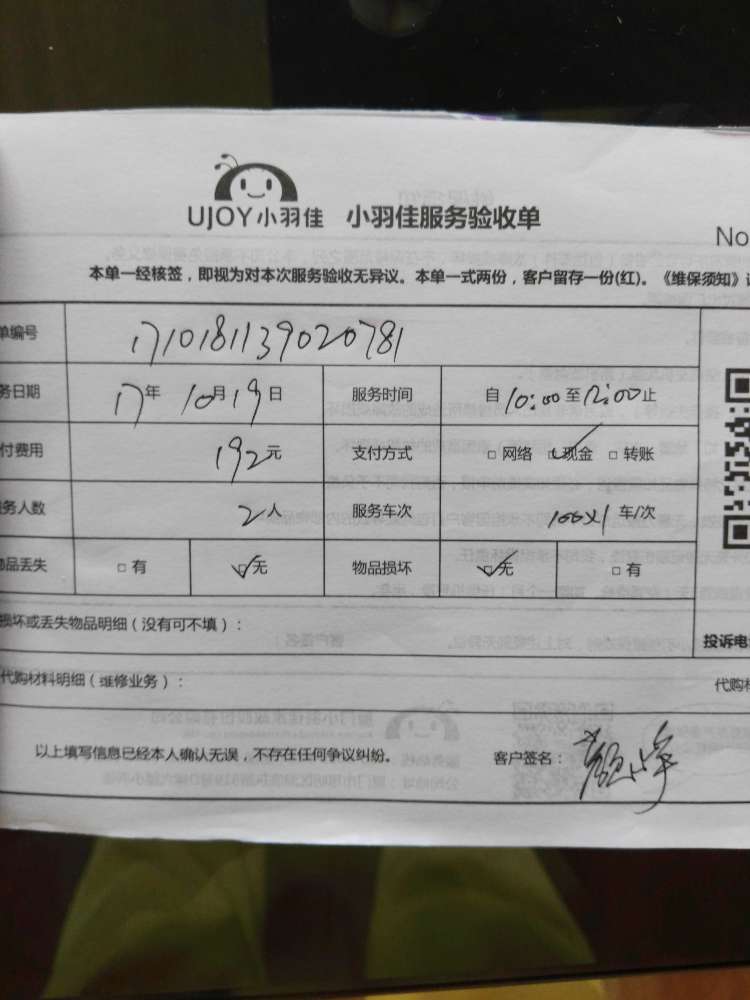 UJOY小羽佳 小羽佳服务验收单
No
本单一经核签，即视为对本次服务验收无异议。本单一式两份，客户留存一份(红)。《维保须知》
单编号 1710181139020781
务日期 17年 10月19日 服务时间 自10:00至12:00止
付费用 192元 支付方式 □ 网络 ☑现金 □ 转账
务人数 2人 服务车次 车/次
物品丢失 □ 有 ☑无 物品损坏 ☑无 □ 有
损坏或丢失物品明细（没有可不填）：
投诉电
代购材料明细（维修业务）：
代购材
以上填写信息已经本人确认无误，不存在任何争议纠纷。 客户签名：